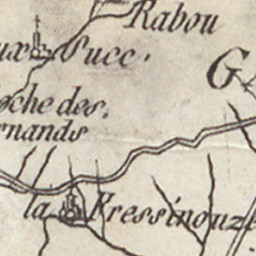 Rabou
ux Succ.
G
oche des
rnands
la Fressinouze